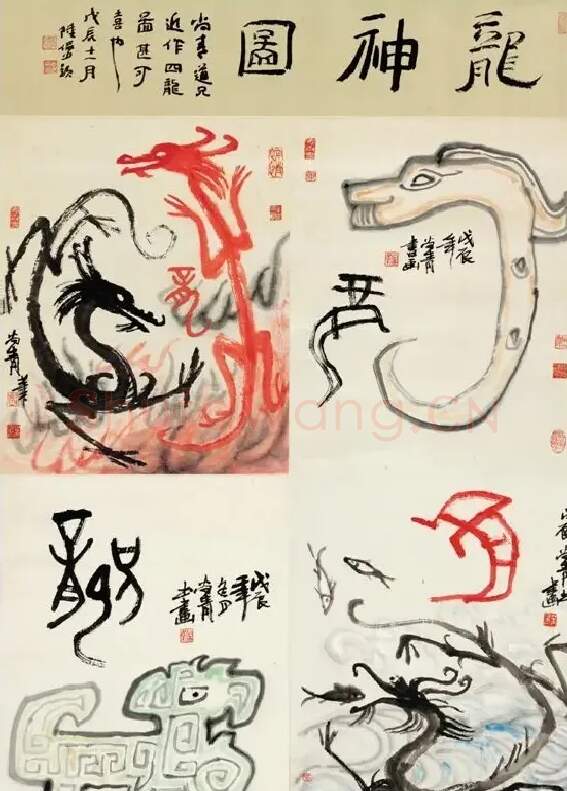 龍神圖
尚青道兄
近作四龍
圖甚可
喜也
戊辰十一月
陸儼少
龍
戊辰
年
尚青
書畫
龍
尚青筆
龍
龍
戊辰
年
尚青
書畫